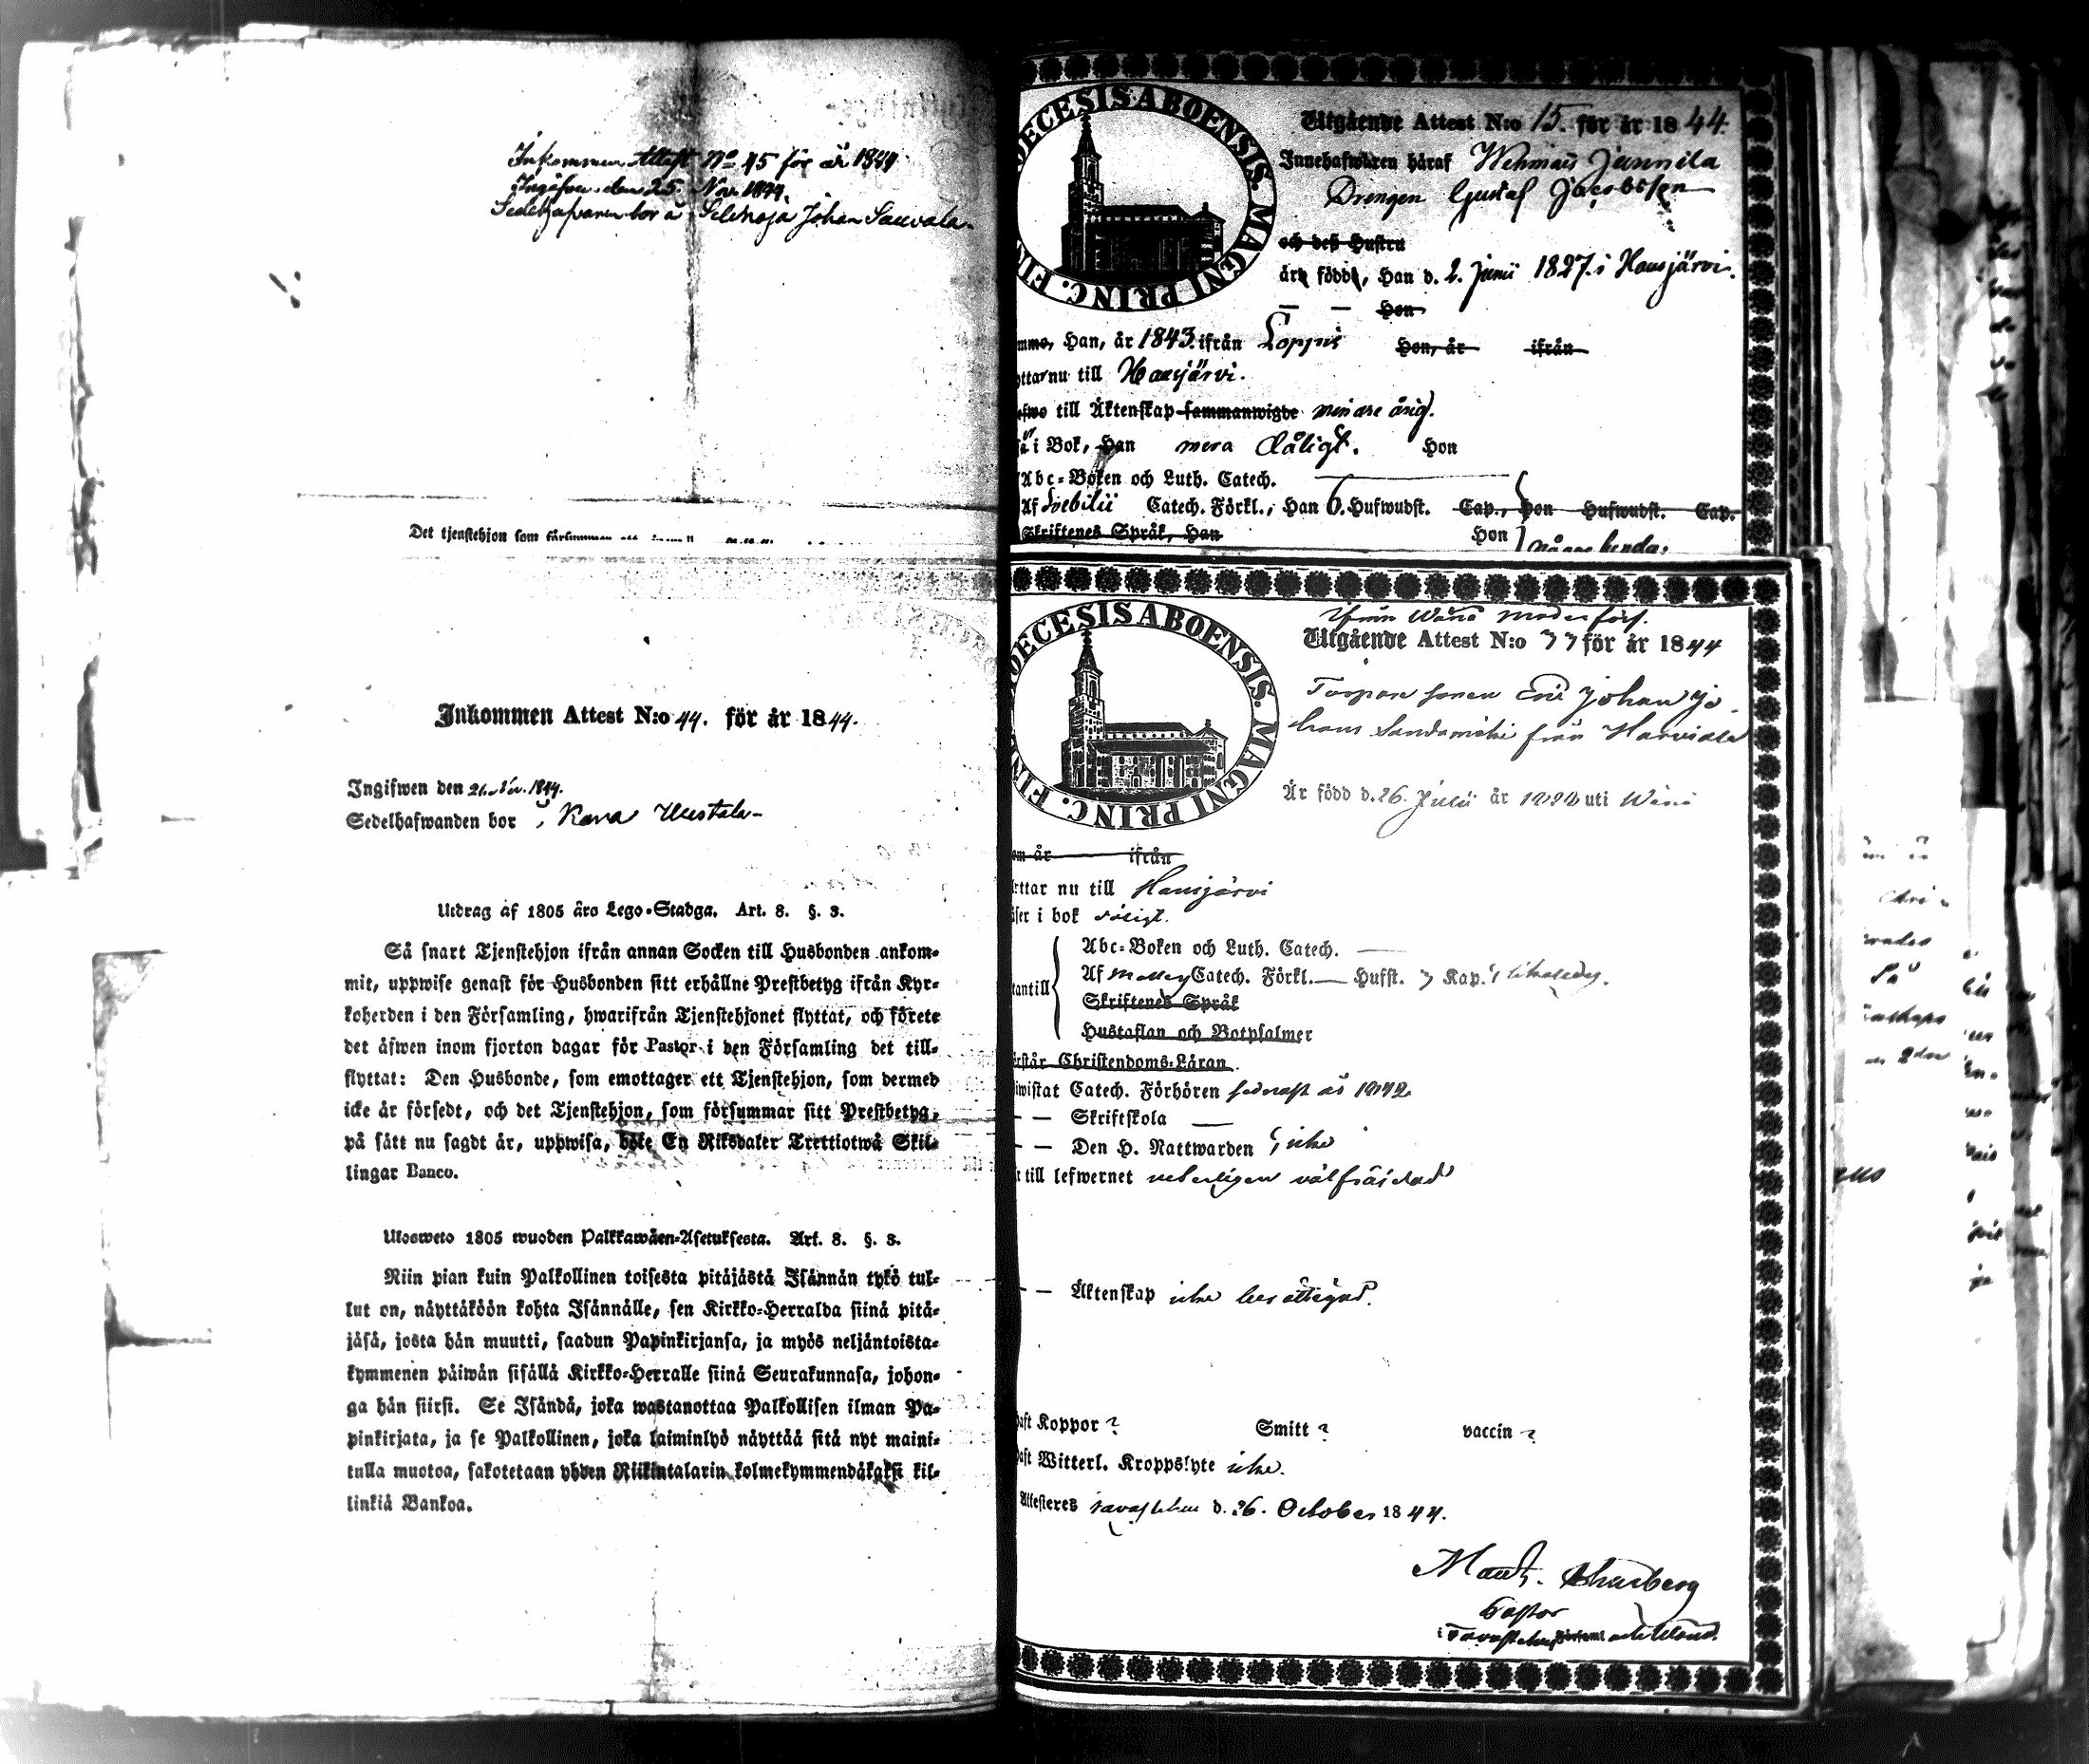 Inkommen Attest No 45 för år 1844
Ingifven den 25. Nov. 1844.
Sedelhafvaren bor å Selänoja Johan Sauvala.
Det tjenstehjon som försummar
Inkommen Attest N:o 44. för år 1844.
Ingifwen den 21. Nov. 1844.
Sedelhafwanden bor i Kara Uustala
Utdrag af 1805 års Lego-Stadga. Art. 8. §. 3.
Så snart Tjenstehjon ifrån annan Socken till Husbonden ankom-
mit, uppwise genast för Husbonden sitt erhållne Prestbetyg ifrån Kyr-
koherden i den Församling, hwarifrån Tjenstehjonet flyttat, och förete
det äfwen inom fjorton dagar för Pastor i den Församling det till-
flyttat: Den Husbonde, som emottager ett Tjenstehjon, som dermed
icke är försedt, och det Tjenstehjon, som försummar sitt Prestbetyg,
på sätt nu sagdt är, uppwisa, böte En Riksdaler Trettiotwå Skil-
lingar Banco.
Ulosweto 1805 wuoden Palkkawäen-Asetuksesta. Art. 8. §. 3.
Niin pian kuin Palkollinen toisesta pitäjästä Isännän tykö tul-
lut on, näyttäköön kohta Isännälle, sen Kirkko-Herralda siinä pitä-
jäsä, josta hän muutti, saadun Papinkirjansa, ja myös neljäntoista-
kymmenen päiwän sisällä Kirkko-Herralle siinä Seurakunnasa, johon-
ga hän siirsi. Se Isändä, joka wastanottaa Palkollisen ilman Pa-
pinkirjata, ja se Palkollinen, joka laiminlyö näyttää sitä nyt maini-
tulla muotoa, sakotetaan yhden Riikintalarin kolmekymmendäkaksi kil-
linkiä Bankoa.
DECESIS ABOENSIS. MAGNI PRINC. FIN
Utgående Attest N:o 15. för år 1844.
Innehafwaren häraf Wehmais Junnila
Drengen Gustaf Jacobsson
och deß Hustru
äro födde, Han d. 2. Junii 1827. i Hausjärvi.
— — Hon
mmo, Han, år 1843. ifrån Loppis Hon, år ifrån
ttar nu till Hausjärvi.
till Äktenskap sammanwigde minore årig.
i Bok, Han mera dåligt. Hon
Abc-Boken och Luth. Catech.
Af Svebilii Catech. Förkl., Han 6. Hufwudst. Cap., Hon Hufwudst. Cap.
Skriftenes Språk, Han Hon
DECESIS ABOENSIS. MAGNI PRINC. FIN
Ifrån Wånå moderförs.
Utgående Attest N:o 77 för år 1844
Torpare sonen Eric Johan Jo-
hans Sandamäki från Harviala
Är född d. 26. Julii år uti Wånå
om år ifrån
ttar nu till Hausjärvi
äser i bok dåligt.
Abc-Boken och Luth. Catech. —
tantill Af Catech. Förkl. — Hufst. 7 Kap.
Skriftenes Språk
Hustaflan och Botpsalmer
örstår Christendoms-Läran
iwistat Catech. Förhören sednast år 1842
— — Skriftskola —
— — Den H. Nattwarden icke
till lefwernet veterligen välfräjdad
— — Äktenskap icke berättigad.
haft Koppor ? Smitt ? vaccin ?
haft Witterl. Kroppslyte icke.
Attesteres Tavastehus d. 26. October 1844.
Pastor
i Tavastehus och Wånå.